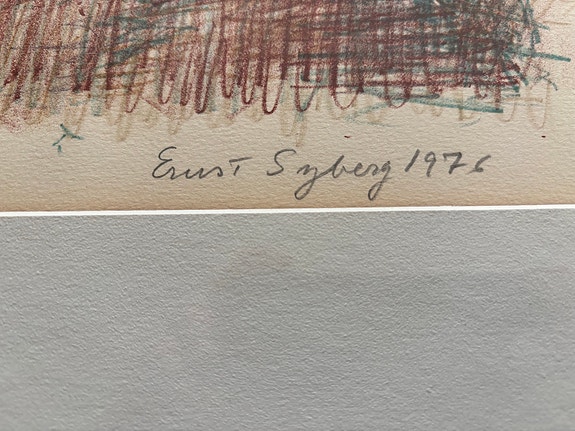 Ernst Syberg 1976